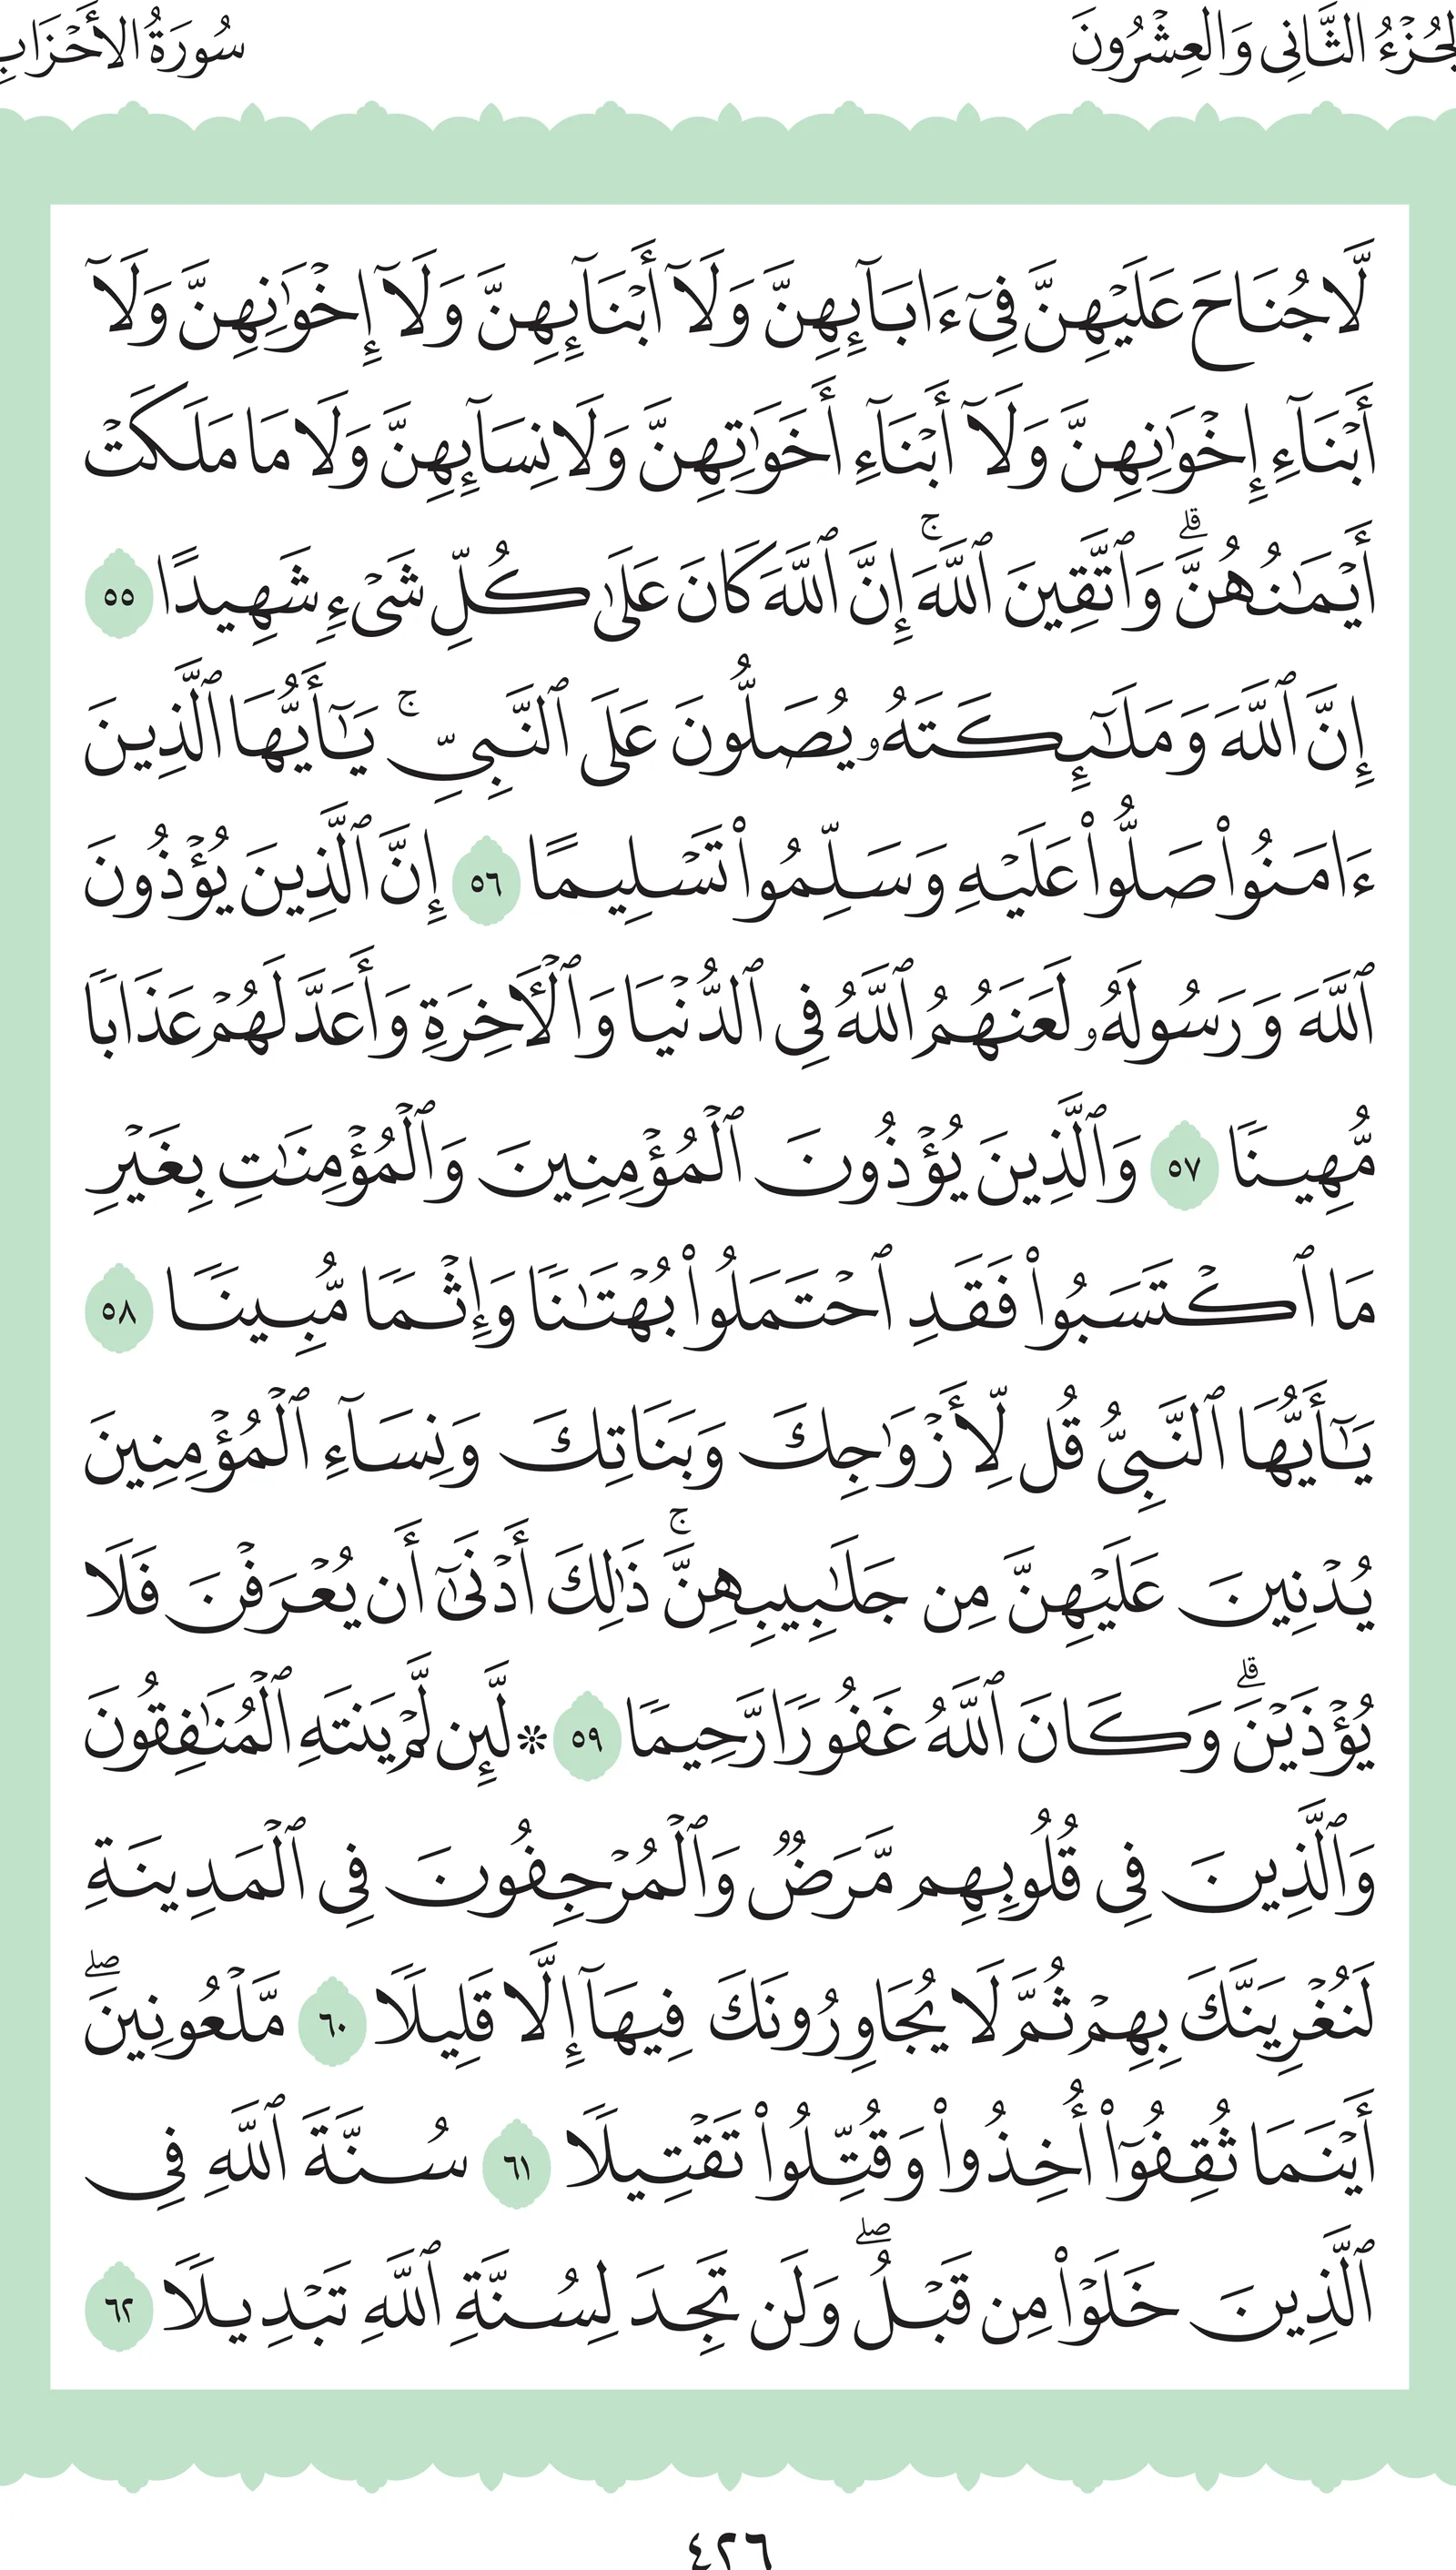 الجُزْءُ الثَّانِي وَالعِشْرُونَ
سُورَةُ الأَحْزَابِ
لَّا جُنَاحَ عَلَيْهِنَّ فِىٓ ءَابَآئِهِنَّ وَلَآ أَبْنَآئِهِنَّ وَلَآ إِخْوَٰنِهِنَّ وَلَآ
أَبْنَآءِ إِخْوَٰنِهِنَّ وَلَآ أَبْنَآءِ أَخَوَٰتِهِنَّ وَلَا نِسَآئِهِنَّ وَلَا مَا مَلَكَتْ
أَيْمَٰنُهُنَّۗ وَٱتَّقِينَ ٱللَّهَۚ إِنَّ ٱللَّهَ كَانَ عَلَىٰ كُلِّ شَىْءٍ شَهِيدًا ٥٥
إِنَّ ٱللَّهَ وَمَلَٰٓئِكَتَهُۥ يُصَلُّونَ عَلَى ٱلنَّبِىِّۚ يَٰٓأَيُّهَا ٱلَّذِينَ
ءَامَنُوا۟ صَلُّوا۟ عَلَيْهِ وَسَلِّمُوا۟ تَسْلِيمًا ٥٦ إِنَّ ٱلَّذِينَ يُؤْذُونَ
ٱللَّهَ وَرَسُولَهُۥ لَعَنَهُمُ ٱللَّهُ فِى ٱلدُّنْيَا وَٱلْءَاخِرَةِ وَأَعَدَّ لَهُمْ عَذَابًا
مُّهِينًا ٥٧ وَٱلَّذِينَ يُؤْذُونَ ٱلْمُؤْمِنِينَ وَٱلْمُؤْمِنَٰتِ بِغَيْرِ
مَا ٱكْتَسَبُوا۟ فَقَدِ ٱحْتَمَلُوا۟ بُهْتَٰنًا وَإِثْمًا مُّبِينًا ٥٨
يَٰٓأَيُّهَا ٱلنَّبِىُّ قُل لِّأَزْوَٰجِكَ وَبَنَاتِكَ وَنِسَآءِ ٱلْمُؤْمِنِينَ
يُدْنِينَ عَلَيْهِنَّ مِن جَلَٰبِيبِهِنَّۚ ذَٰلِكَ أَدْنَىٰٓ أَن يُعْرَفْنَ فَلَا
يُؤْذَيْنَۗ وَكَانَ ٱللَّهُ غَفُورًا رَّحِيمًا ٥٩ * لَّئِن لَّمْ يَنتَهِ ٱلْمُنَٰفِقُونَ
وَٱلَّذِينَ فِى قُلُوبِهِم مَّرَضٌ وَٱلْمُرْجِفُونَ فِى ٱلْمَدِينَةِ
لَنُغْرِيَنَّكَ بِهِمْ ثُمَّ لَا يُجَاوِرُونَكَ فِيهَآ إِلَّا قَلِيلًا ٦٠ مَّلْعُونِينَۖ
أَيْنَمَا ثُقِفُوٓا۟ أُخِذُوا۟ وَقُتِّلُوا۟ تَقْتِيلًا ٦١ سُنَّةَ ٱللَّهِ فِى
ٱلَّذِينَ خَلَوْا۟ مِن قَبْلُۖ وَلَن تَجِدَ لِسُنَّةِ ٱللَّهِ تَبْدِيلًا ٦٢
٤٢٦